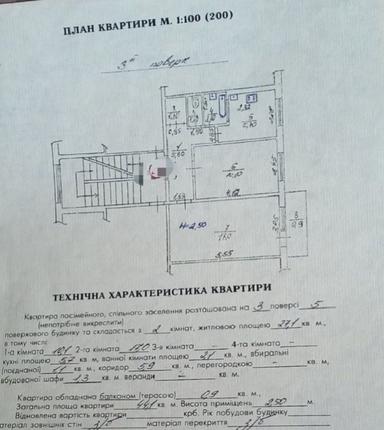 ПЛАН КВАРТИРИ М. 1:100 (200)
3й поверх
H=2,50
5,55
4,12
ТЕХНІЧНА ХАРАКТЕРИСТИКА КВАРТИРИ
Квартира посімейного, спільного заселення розташована на 3 поверсі 5
(непотрібне викреслити)
поверхового будинку та складається з 2 кімнат, житловою площею 27,1 кв. м.,
в тому числі:
1-а кімната 10,1 2-га кімната 17,0 3-я кімната – 4-та кімната –
кухні площею 5,7 кв. м, ванної кімнати площею 2,1 кв. м., вбиральні
(поєднаної) 1,1 кв. м., коридор 5,9 кв. м., перегородкою – кв. м.,
вбудованої шафи 1,3 кв. м. веранди – кв. м.
Квартира обладнана балконом (терасою) 0,9 кв. м.,
Загальна площа квартири 44,1 кв. м. Висота приміщень 2,50 м.
Відновлена вартість квартири крб. Рік побудови будинку
матеріал зовнішніх стін з/б матеріал перекриття з/б